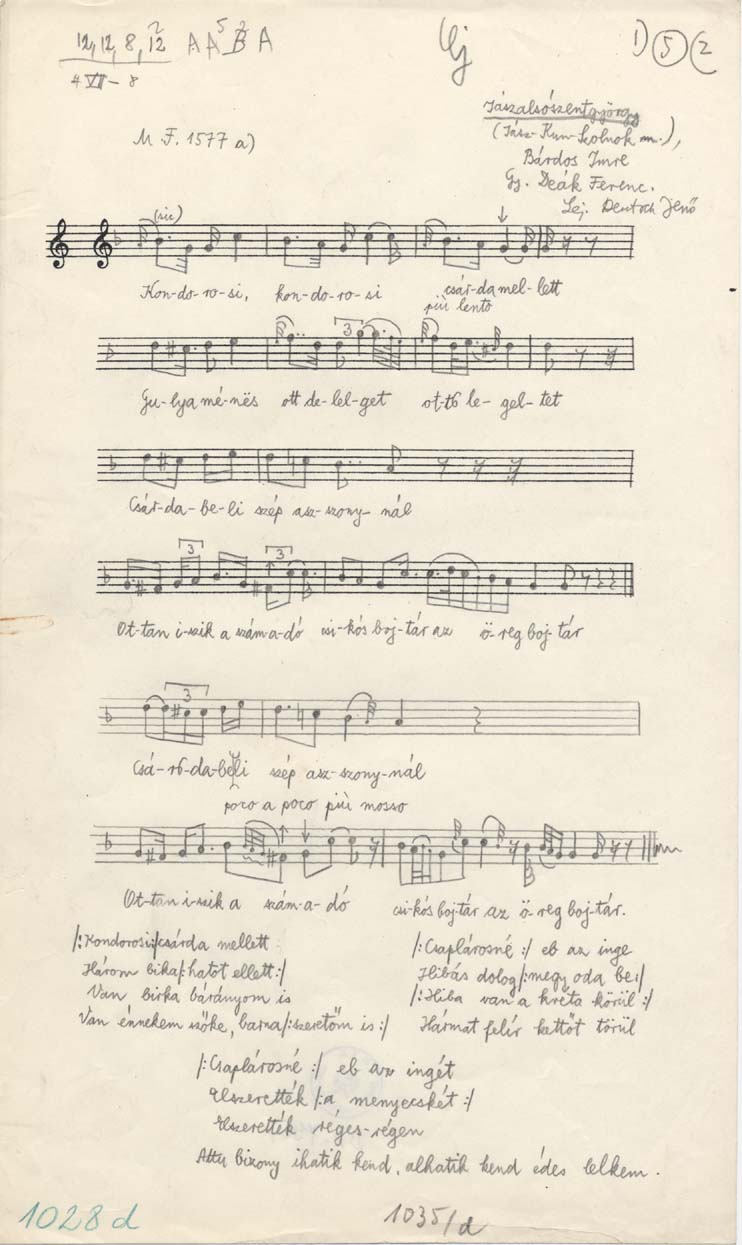 12, 12, 8, 12 A A⁵ B² A
2
4 VII – 8
Uj
1) 5 2
M. F. 1577 a)
Jászalsószentgyörgy
(Jász-Kun-Szolnok m.),
Bárdos Imre
Gy. Deák Ferenc.
Lej. Deutsch Jenő
(sic)
Kon-do-ro-si, kon-do-ro-si csár-da mel-lett
più lento
3
Gu-lya mé-nës ott de-lel-get ot-tö le-gel-tet
Csár-da-be-li szép asz-szony-nál
3 3
Ot-tan i-szik a szám-a-dó csi-kós boj-tár az ö-reg boj-tár
3
Csá-rö-da-beli szép asz-szony-nál
poco a poco più mosso
Ot-tan i-szik a szám-a-dó csi-kós boj-tár az ö-reg boj-tár.
/:Kondorosi:/csárda mellett
Három bika/:hatot ellett:/
Van birka bárányom is
Van énnekem szőke, barna/:szeretőm is:/
/:Csaplárosné:/ eb az inge
Hibás dolog/:megy oda be:/
/:Hiba van a kréta körül:/
Hármat felír kettőt töröl
/:Csaplárosné:/ eb az ingét
Elszerették/:a menyecskét:/
Elszerették réges-régen
Attu bizony ihatik kend, alhatik kend édes lelkem.
1028 d
1035/d